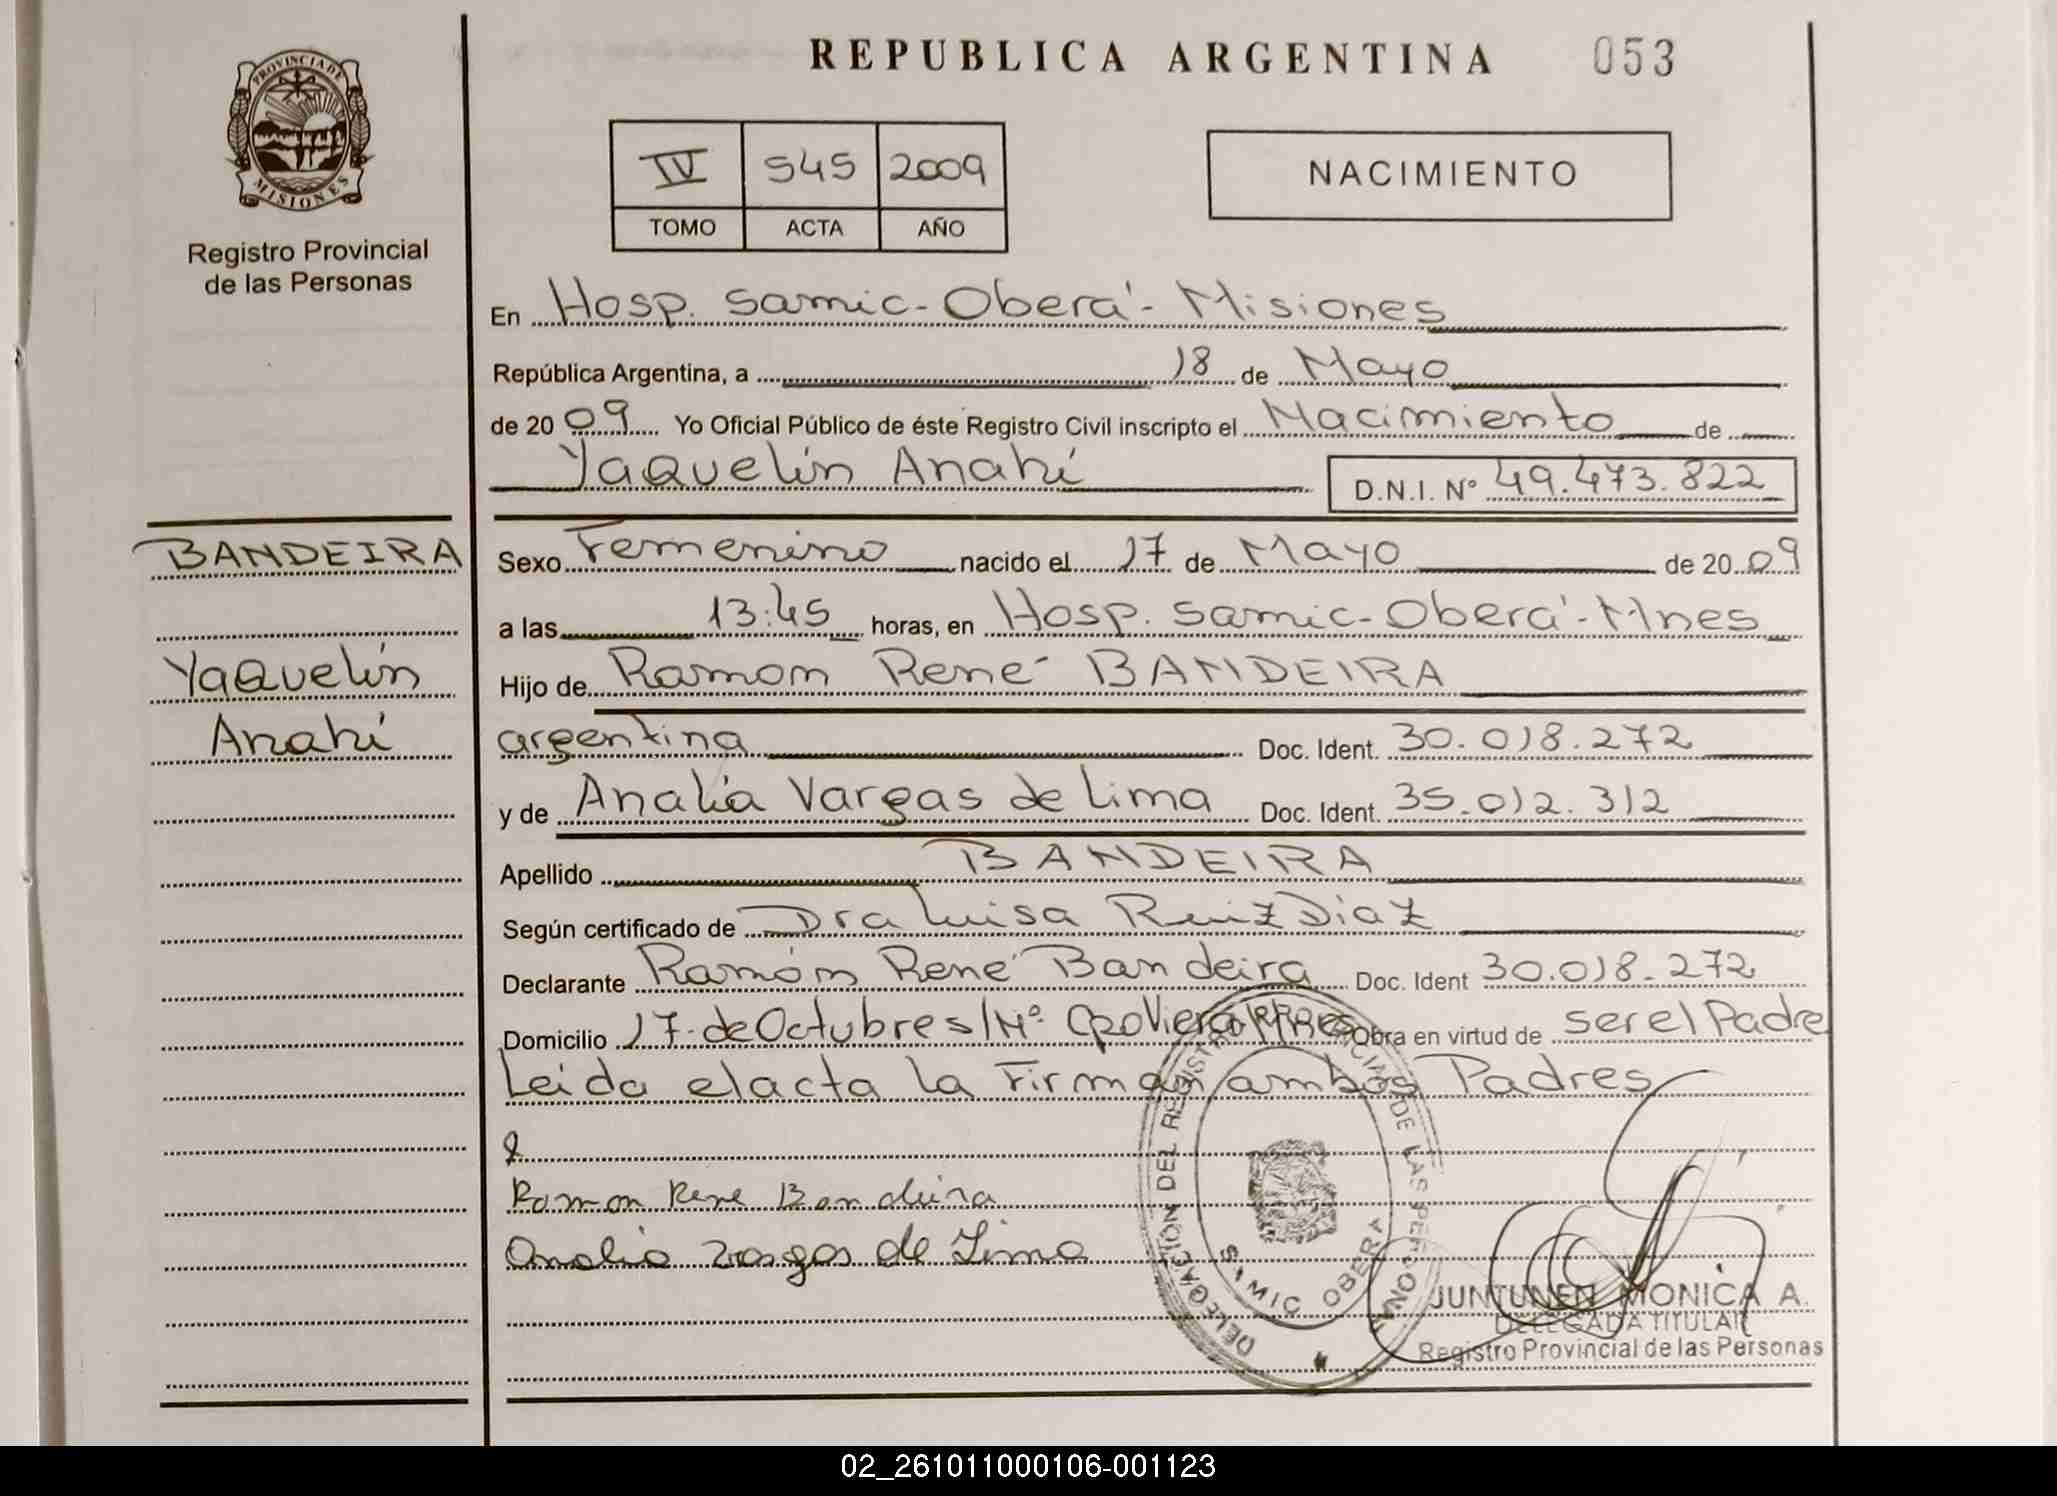 REPUBLICA ARGENTINA 053
PROVINCIA DE
MISIONES
Registro Provincial
de las Personas
IV 545 2009
TOMO ACTA AÑO
NACIMIENTO
En Hosp. Samic-Oberá-Misiones
República Argentina, a 18 de Mayo
de 2009 Yo Oficial Público de éste Registro Civil inscripto el Nacimiento de
Yaquelin Anahí D.N.I. Nº 49.473.822
BANDEIRA
Yaquelin
Anahí
Sexo Femenino nacido el 17 de Mayo de 2009
a las 13:45 horas, en Hosp. Samic-Oberá-Mnes
Hijo de Ramon René BANDEIRA
argentina Doc. Ident. 30.018.272
y de Analía Vargas de Lima Doc. Ident. 35.012.312
Apellido BANDEIRA
Según certificado de Dra Luisa Ruiz Diaz
Declarante Ramón René Bandeira Doc. Ident 30.018.272
Domicilio 17 de Octubre s/Nº Cpo Viera Mnes Obra en virtud de ser el Padre
Leida el acta la Firman ambos Padres
Ramon Rene Bandeira
Analia Vargas de Lima
DELEGACIÓN DEL REGISTRO PROVINCIAL DE LAS PERSONAS
SAMIC OBERA
JUNTUNEN MONICA A.
DELEGADA TITULAR
Registro Provincial de las Personas
02_261011000106-001123